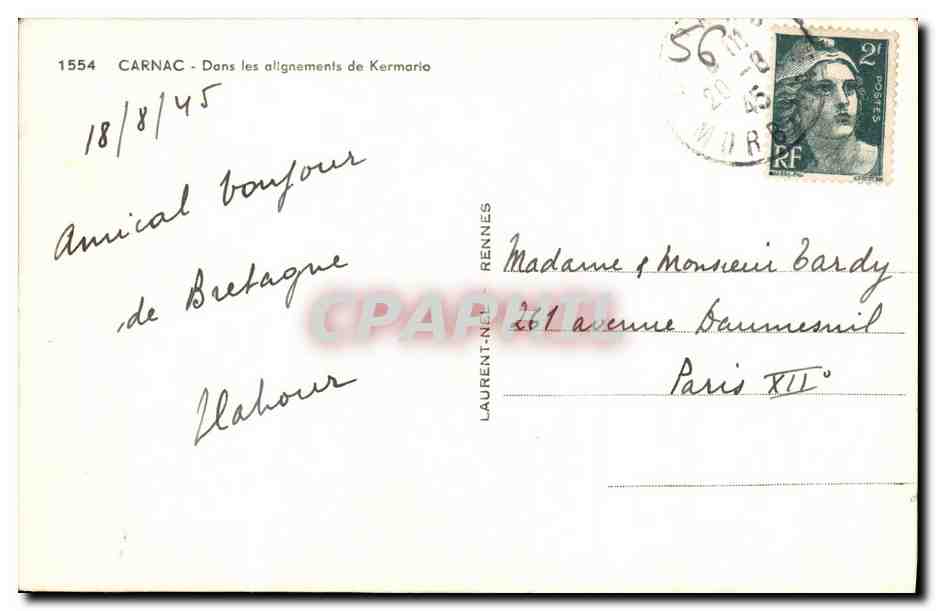 1554 CARNAC - Dans les alignements de Kermario
18/8/45
Amical bonjour
de Bretagne
LAURENT-NEL - RENNES
56
20 -8 45
MORB
2F
POSTES
RF
Madame & Monsieur Tardy
261 avenue Daumesnil
Paris XII°
CPAPHIL